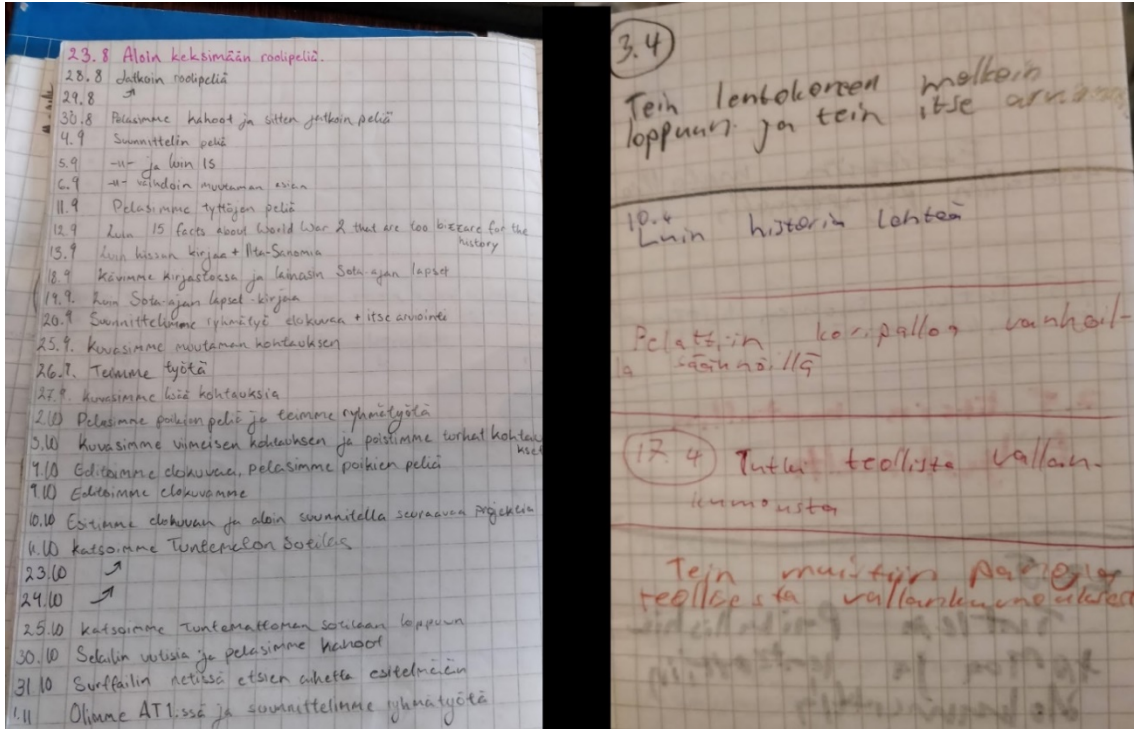 23.8 Aloin keksimään roolipeliä.
28.8 Jatkoin roolipeliä
29.8 ↗
30.8 Pelasimme kahoot ja sitten jatkoin peliä
4.9 Suunnittelin peliä
5.9 -u- ja luin IS
6.9 -u- vaihdoin muutaman asian
11.9 Pelasimme tyttöjen peliä
12.9 Luin 15 facts about World War 2 that are too bizzare for the
history
13.9 Luin hissan kirjaa + Ilta-Sanomia
18.9 Kävimme kirjastossa ja lainasin Sota-ajan lapset
19.9. Luin Sota-ajan lapset -kirjaa
20.9 Suunnittelimme ryhmätyö elokuvaa + itse arviointi
25.9. Kuvasimme muutaman kohtauksen
26.9. Teimme työtä
27.9. Kuvasimme lisä kohtauksia
2.10 Pelasimme poikien peliä ja teimme ryhmätyötä
3.10 Kuvasimme viimeisen kohtauksen ja poistimme turhat kohtau
kset
4.10 Editoimme elokuvaa, pelasimme poikien peliä
9.10 Editoimme elokuvamme
10.10 Esitimme elokuvan ja aloin suunnitella seuraavaa projektia
11.10 Katsoimme Tuntematon Sotilas
23.10 ↗
24.10 ↗
25.10 Katsoimme Tuntemattoman sotilaan loppuun
30.10 Selailin uutisia ja pelasimme kahoot
31.10 Surffailin netissä etsien aihetta esitelmään
1.11 Olimme AT1:ssä ja suunnittelimme ryhmätyötä
3.4
Tein lentokoneen melkein
loppuun. ja tein itse
10.4
Luin historia lehteä
Pelattiin koripalloa vanhoil-
la säännöillä
17.4 Tutki teollista vallan-
kumousta
Tein muistiin
teollisesta